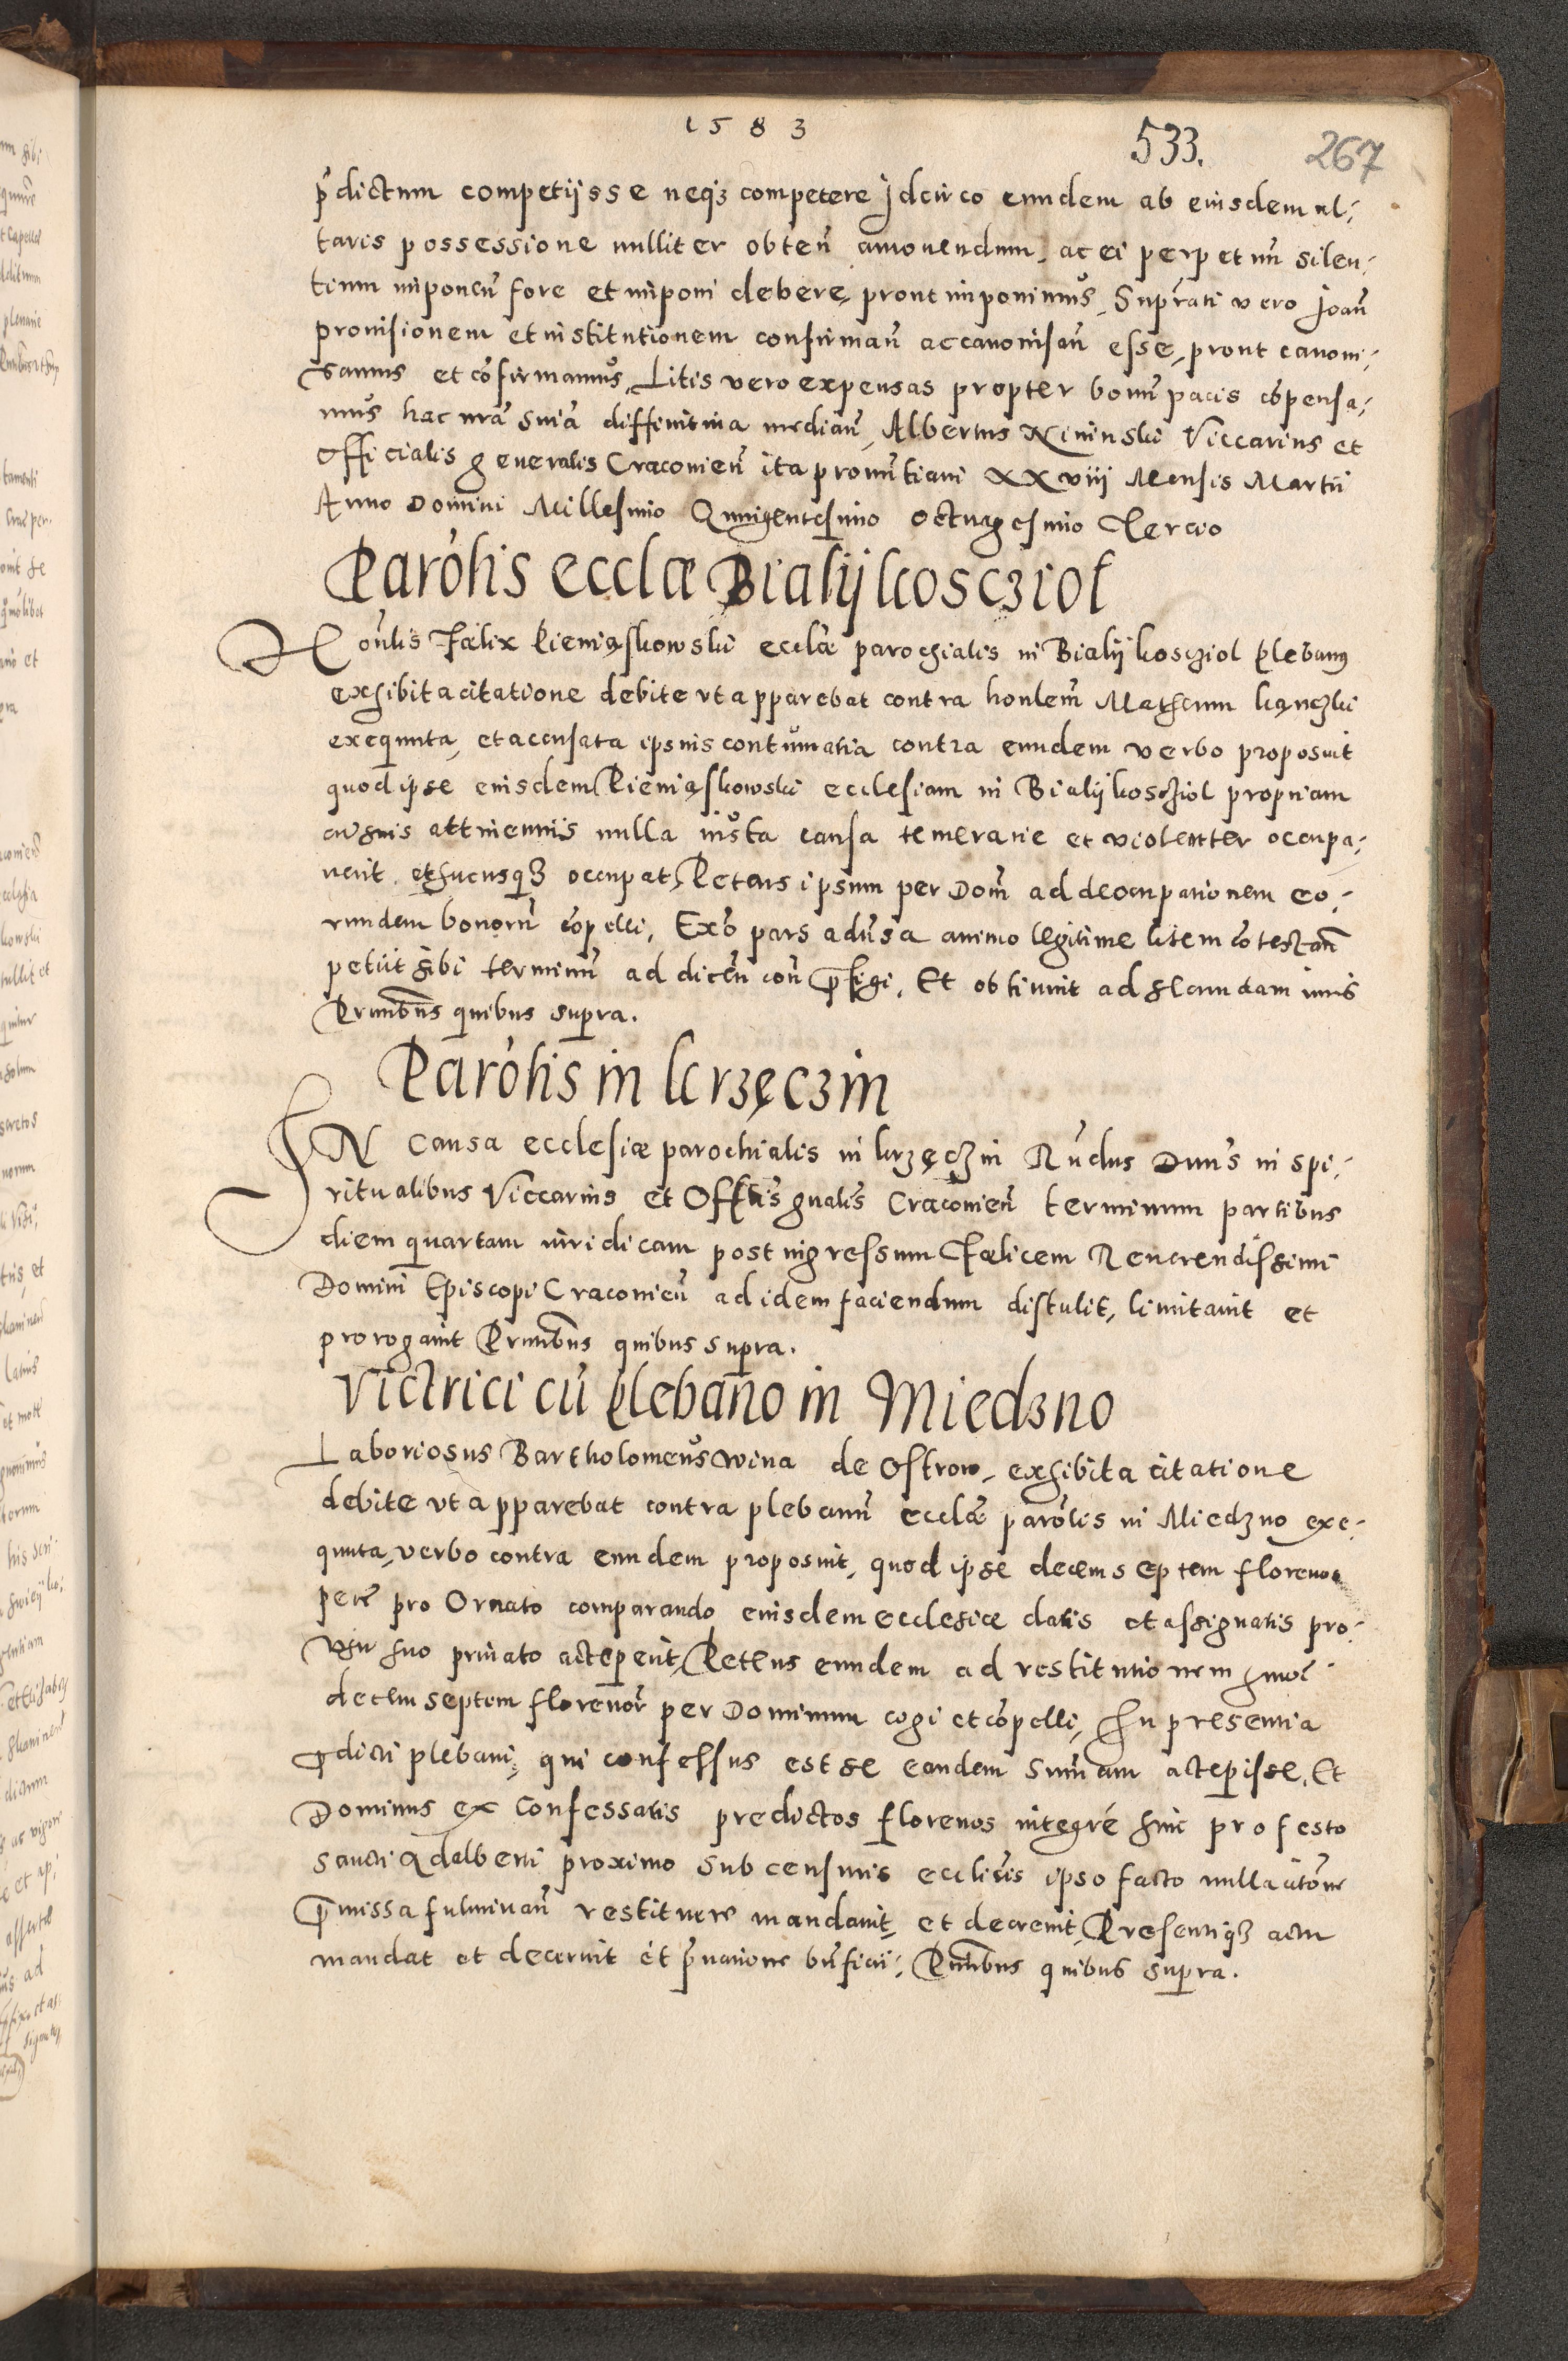 1583
533.
267
p̄dictum competijsse neqʒ competere Jdcirco eundem ab eiusdem al:
taris possessione nulliter obteñ amouendum, ac ei perpetuū silen:
tium imponeñ fore et imponi debere, prout imponimus, Supr̄ati vero Joañ
prouisionem et institutionem confirmañ ac canonisañ esse, prout canoni:
samus et cōfirmamus, Litis vero expensas propter bonū pacis cōpensa:
mus hac nr̄a sn̄ia diffinitiua mediañ, Albertus Xininski Viccarius et
Officialis generalis Cracouieñ ita pronūtiaui XXviij Mensis Martii
Anno Domini Millesimo Quingentesimo octuagesimo Tercio
Parōlis ecclæ Bialÿ kosczioł
Honlis Fælix Pieniąskowski ecclæ parochialis in Bialÿ kosczioł Plebanus
exhibita citatione debite vt apparebat contra honlem̄ Matheum
exequuta, et accusata ipsius contumatia contra eundem verbo proposuit
quod ipse eiusdem Pieniąskowski ecclesiam in Bialÿ kosczioł propriam
cū suis attinentiis nulla iusta causa temerarie et violenter occupa:
uerit, et hucusqʒ occupat, Petens ipsum per Dom̄ ad deocupationem eo:
rundem bonorū cōpelli, Exō pars aduersa animo legitime litem cōtestañ
petiit sibi terminū ad diceñ coñ p̄figi. Et obtinuit ad secundam iuris
Prn̄tibus quibus supra.
Parōlis in krzęczin
IN Causa ecclesiæ parochialis in krzęczin Rn̄dus Dnūs in spi:
ritualibus Viccarius et Offtlis gnalis Cracouieñ terminum partibus
diem quartam iuridicam post ingressum Fælicem Reuerendissimi
Domini Episcopi Cracouieñ ad idem faciendum distulit, limitauit et
prorogauit Prn̄tibus quibus supra.
Victrici cū plebano in Miedzno
Laboriosus Bartholomeus Wina de Ostrow, exhibita citatione
debite vt apparebat contra plebanū ecclæ parōlis in Miedzno exe:
quuta, verbo contra eundem proposuit, quod ipse decem septem florenos
pec̄ pro Ornato comparando eiusdem ecclesiæ datis et assignatis pro
vsu suo priuato acceperit, Petens eundem ad restitutionem hmōi
decem septem florenor̄ per Dominum cogi et cōpelli, In presentia
p̄dicti plebani, qui confessus est se eandem Sum̄am accepisse, Et
Dominus ex Confessatis predictos florenos integrè hinc pro festo
Sancti Adalberti proximo sub censuris ecclīcis ipso facto nulla citōne
p̄missa fulminañ restituere mandauit, et decreuit, Presentiqʒ actu
mandat et decernit et p̄uatione bn̄ficii, Prn̄tibus quibus supra.